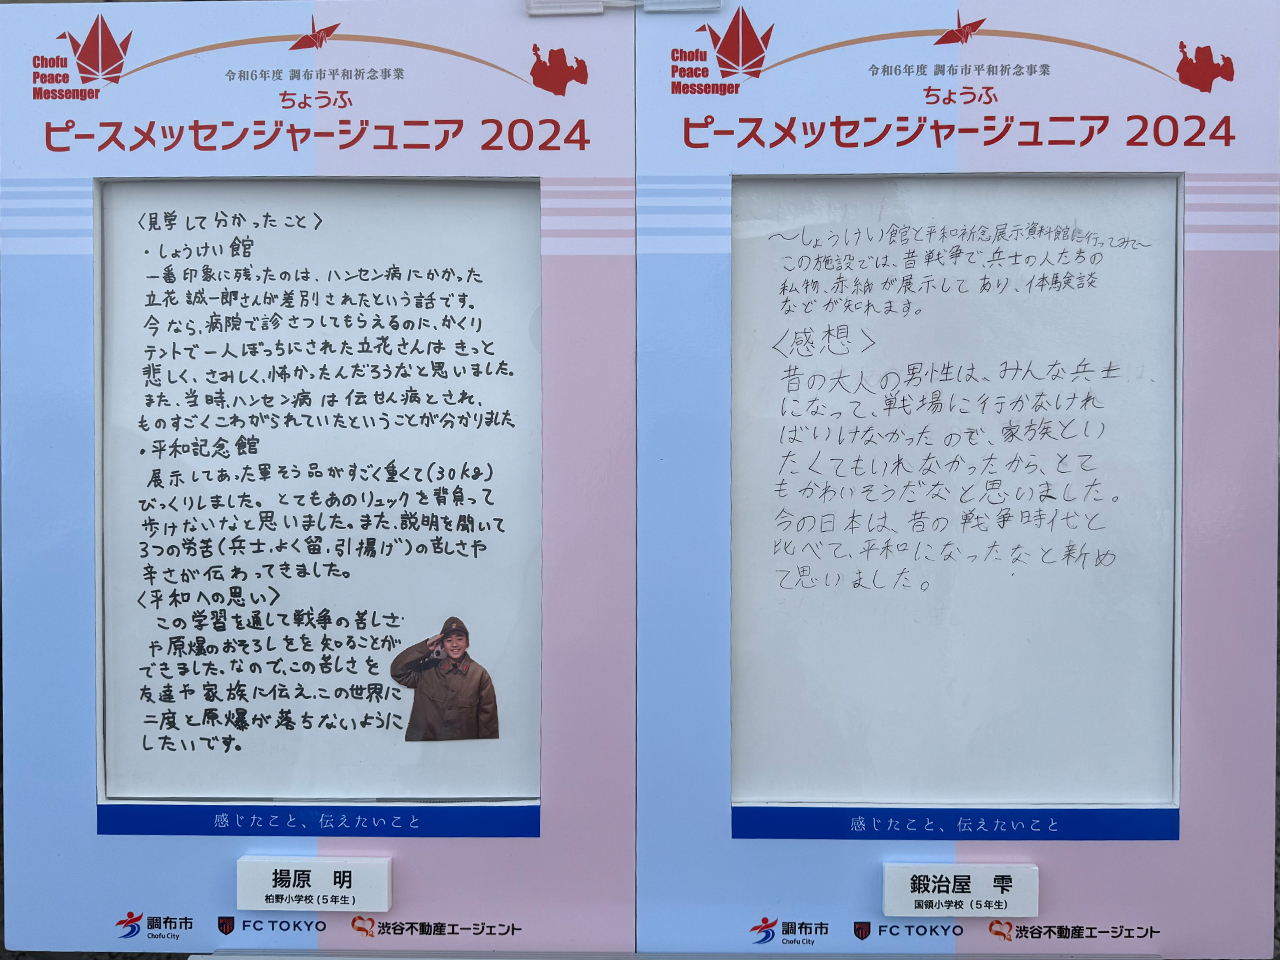 Chofu
Peace
Messenger
令和6年度 調布市平和祈念事業
ちょうふ
ピースメッセンジャージュニア 2024
〈見学して分かったこと〉
・しょうけい館
一番印象に残ったのは、ハンセン病にかかった
立花誠一郎さんが差別されたという話です。
今なら、病院で診さつしてもらえるのに、かくり
テントで一人ぼっちにされた立花さんはきっと
悲しく、さみしく、怖かったんだろうなと思いました。
また、当時、ハンセン病は伝せん病とされ、
ものすごくこわがられていたということが分かりました
・平和記念館
展示してあった軍そう品がすごく重くて(30kg)
びっくりしました。とてもあのリュックを背負って
歩けないなと思いました。また、説明を聞いて
3つの労苦(兵士、よく留、引揚げ)の苦しさや
辛さが伝わってきました。
〈平和への思い〉
この学習を通して戦争の苦しさ
や原爆のおそろしさを知ることが
できました。なので、この苦しさを
友達や家族に伝え、この世界に
二度と原爆が落ちないように
したいです。
感じたこと、伝えたいこと
揚原 明
柏野小学校(5年生)
調布市
Chofu City
FC TOKYO
渋谷不動産エージェント
Chofu
Peace
Messenger
令和6年度 調布市平和祈念事業
ちょうふ
ピースメッセンジャージュニア 2024
～しょうけい館と平和祈念展示資料館に行ってみて～
この施設では、昔戦争で、兵士の人たちの
私物、赤紙が展示してあり、体験談
などが知れます。
〈感想〉
昔の大人の男性は、みんな兵士
になって、戦場に行かなけれ
ばいけなかったので、家族とい
たくてもいれなかったから、とて
もかわいそうだなと思いました。
今の日本は、昔の戦争時代と
比べて、平和になったなと新め
て思いました。
感じたこと、伝えたいこと
鍛治屋 雫
国領小学校(5年生)
調布市
Chofu City
FC TOKYO
渋谷不動産エージェント